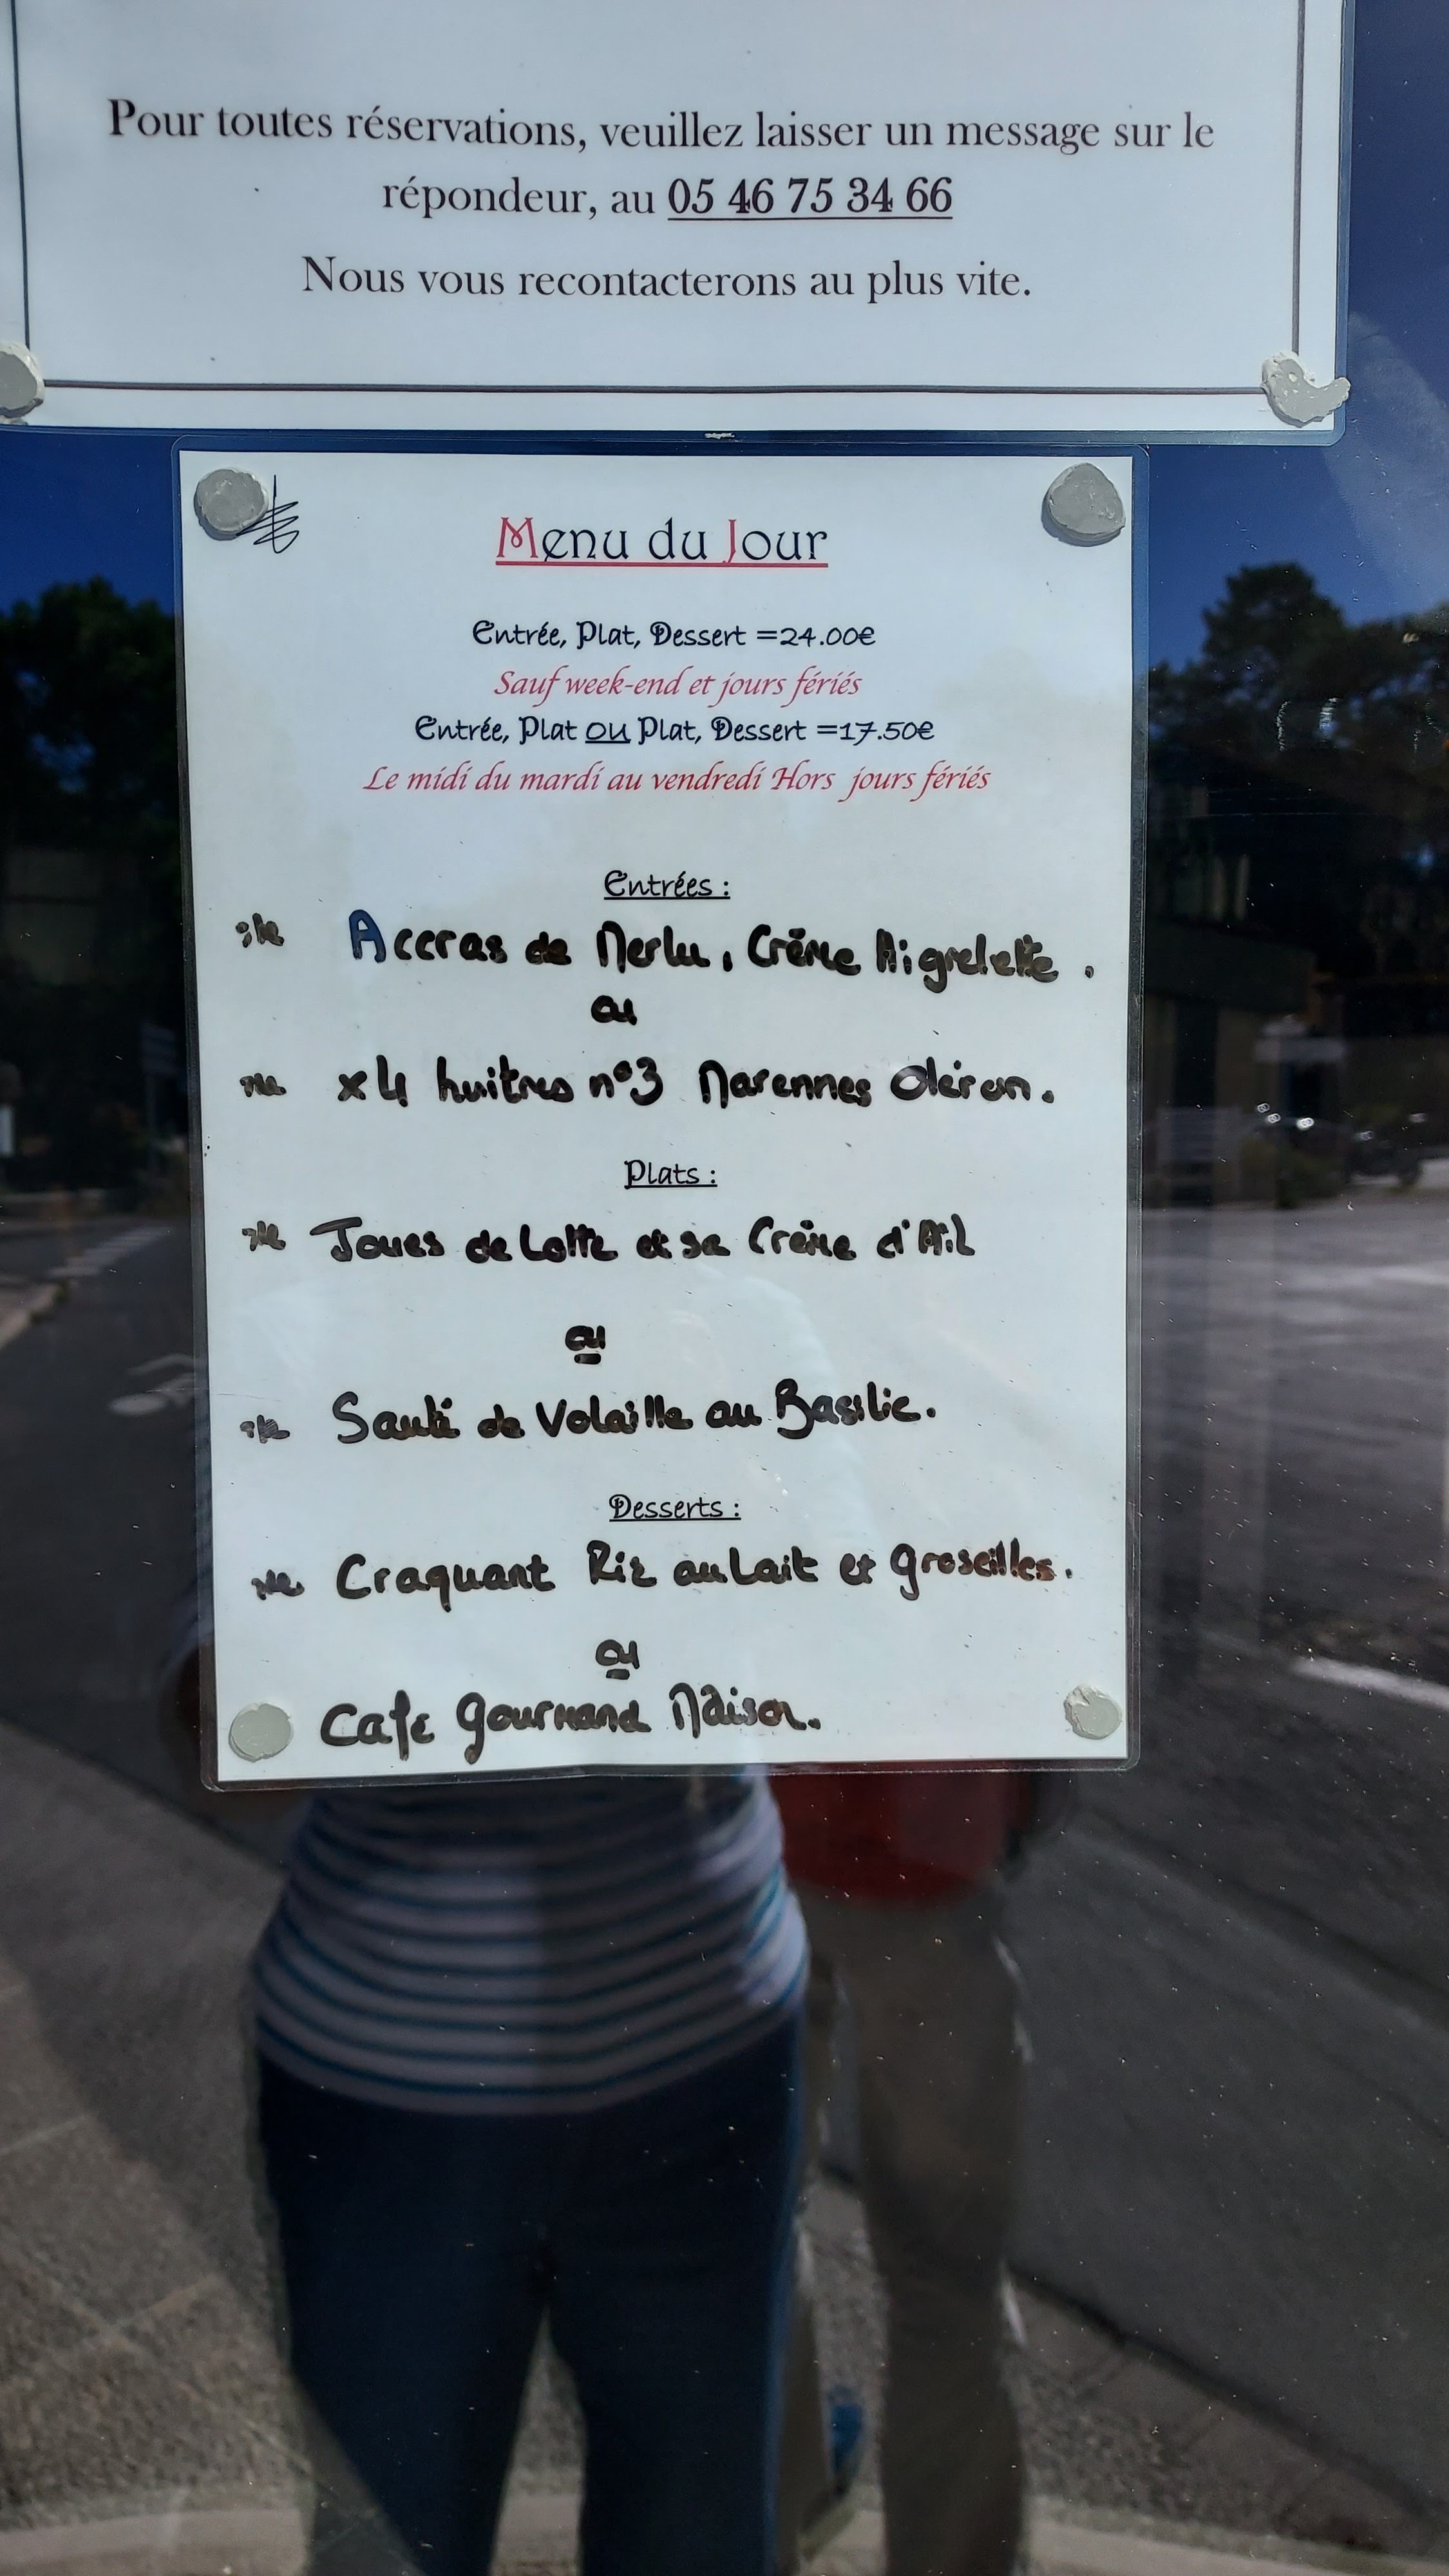 Pour toutes réservations, veuillez laisser un message sur le
répondeur, au 05 46 75 34 66
Nous vous recontacterons au plus vite.
Menu du Jour
Entrée, Plat, Dessert =24.00€
Sauf week-end et jours fériés
Entrée, Plat OU Plat, Dessert =17.50€
Le midi du mardi au vendredi Hors jours fériés
Entrées :
Accras de Merlu, Crème Aigrelette.
ou
x4 huitres n°3 Marennes Oléron.
Plats :
Joues de Lotte et sa Crème d'Ail
ou
Sauté de Volaille au Basilic.
Desserts :
Craquant Riz au Lait et Groseilles.
ou
Café Gourmand Maison.